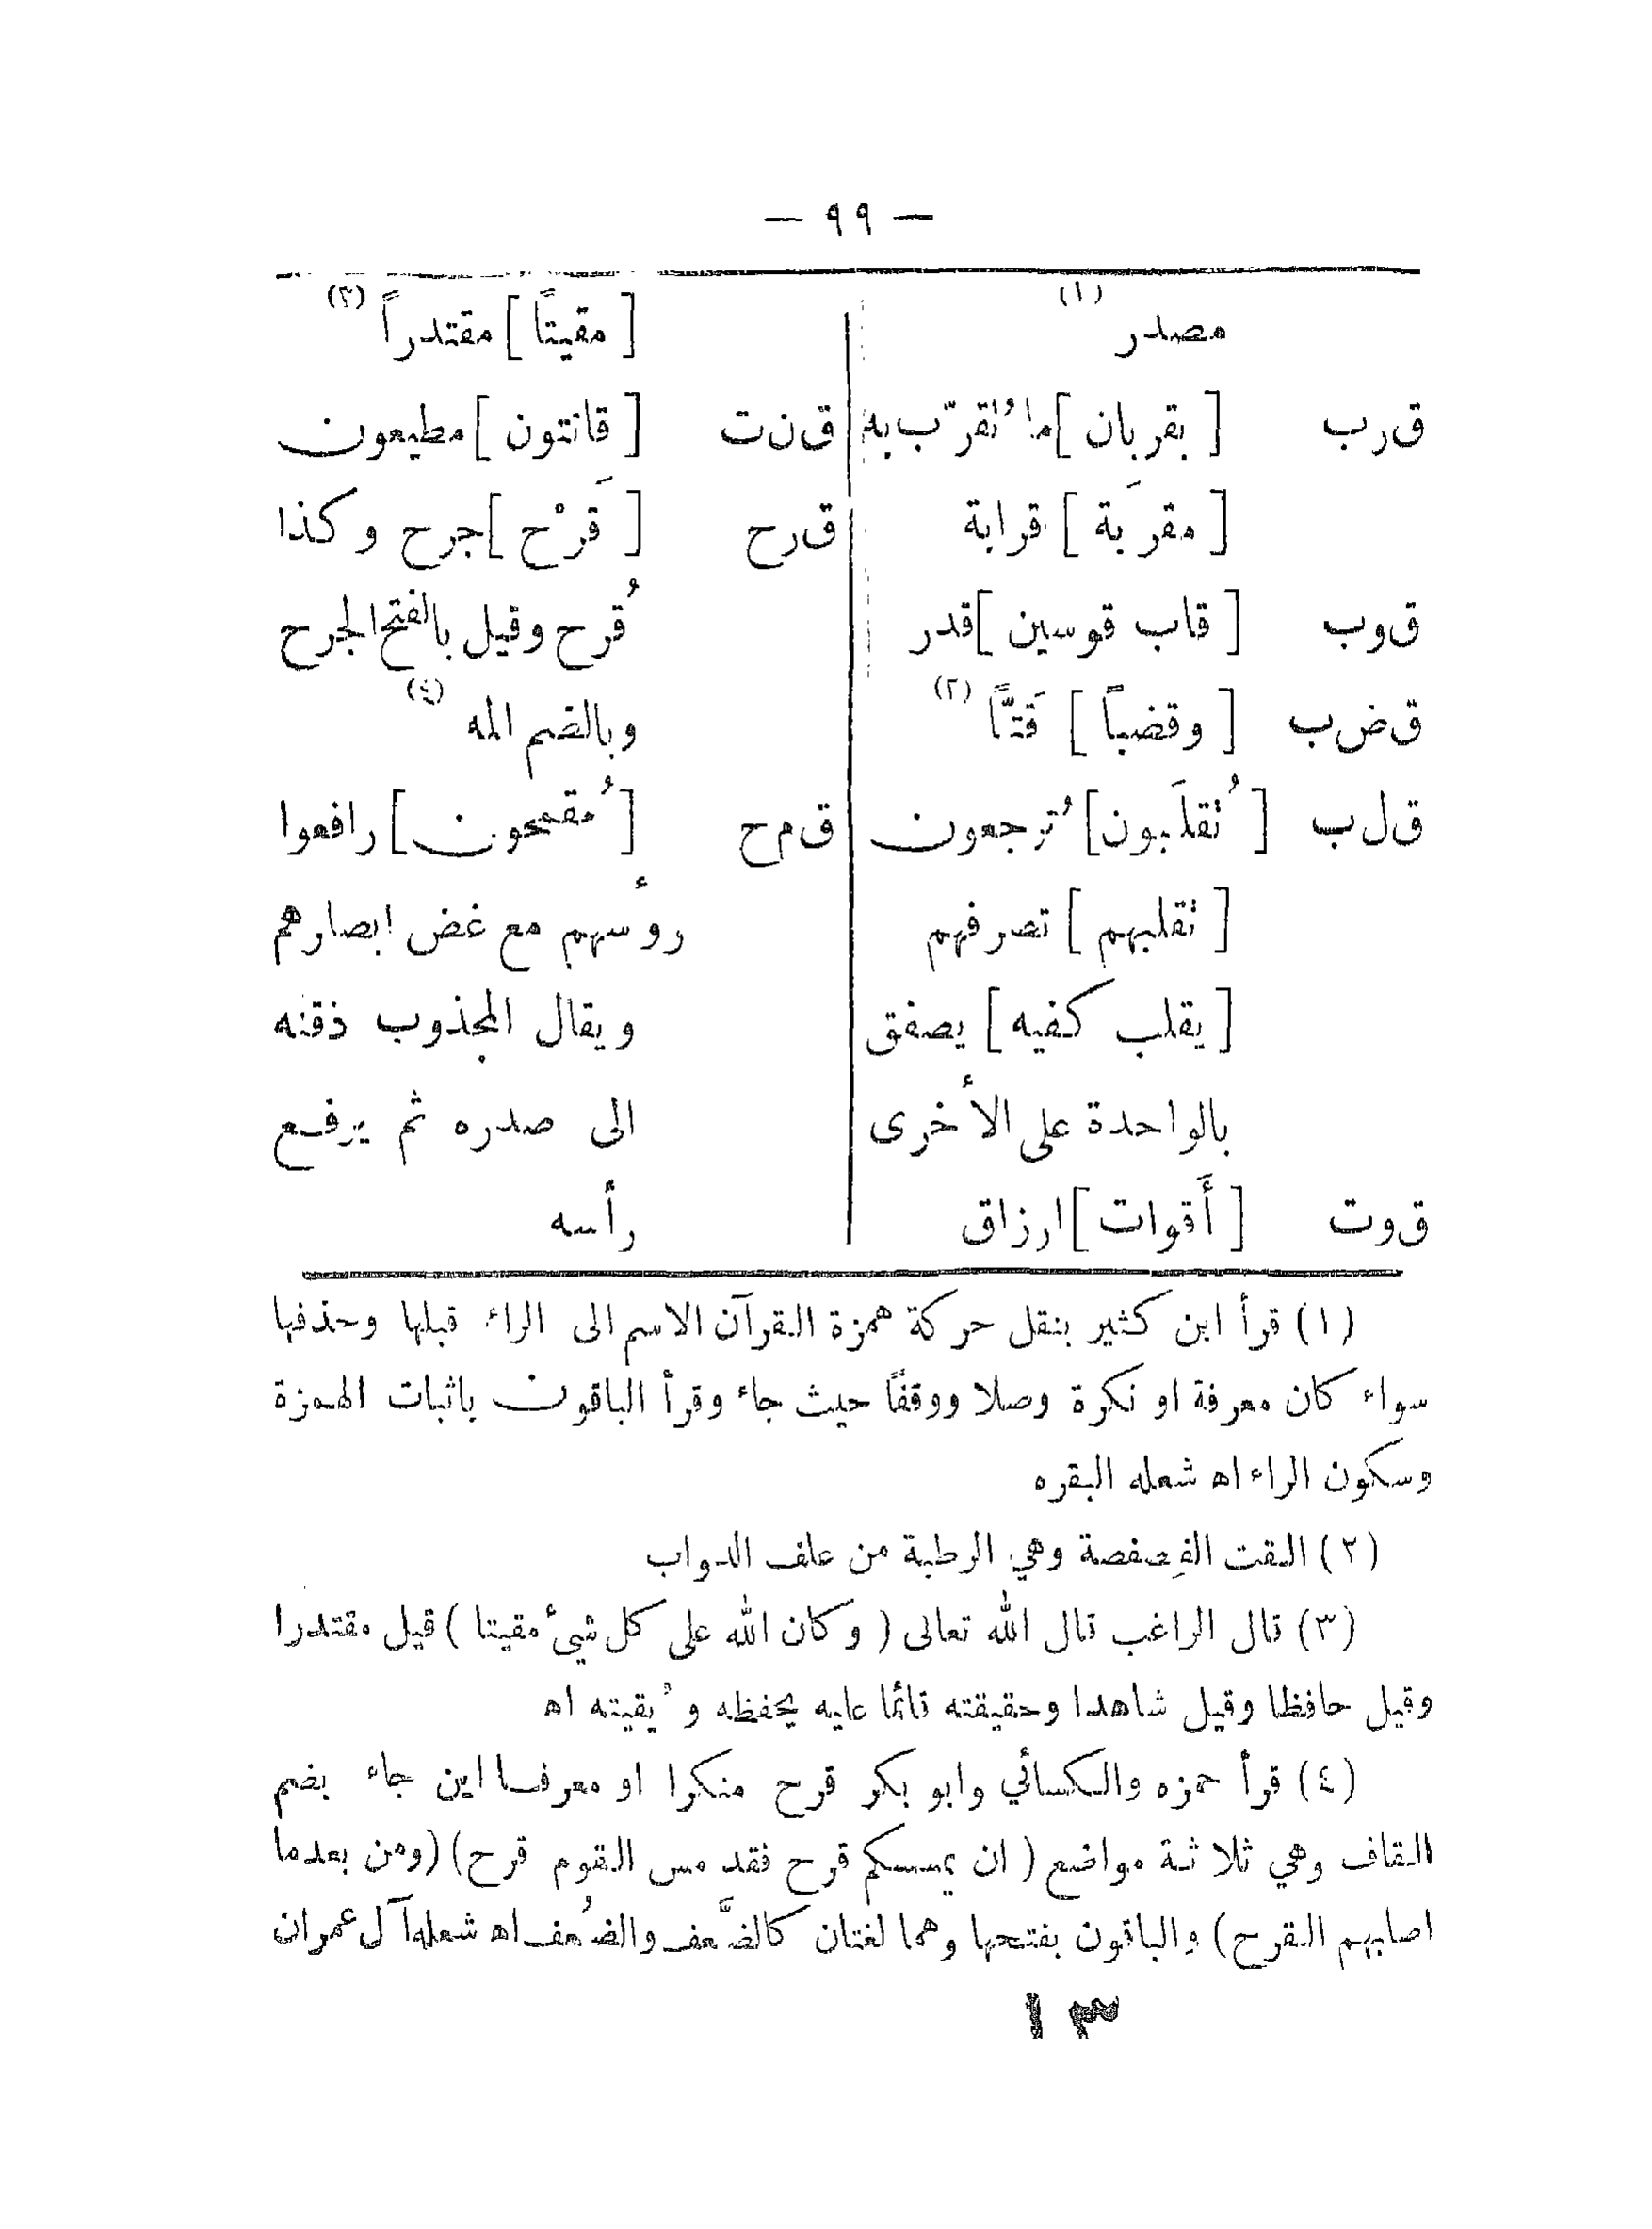 — ٩٩ —
مصدر (١)
ق ر ب [ بقربان ] ما تُقرّب به
[ مقرَبة ] قرابة
ق و ب [ قاب قوسين ] قدر
ق ض ب [ وقضباً ] قَتّاً (٢)
ق ل ب [ تُقلَبون ] تُرجعون
[ تقلبهم ] تصرفهم
[ يقلب كفيه ] يصفق
بالواحدة على الأخرى
ق و ت [ أَقوات ] ارزاق
[ مقيتاً ] مقتدراً (٣)
ق ن ت [ قانتون ] مطيعون
ق ر ح [ قَرْح ] جرح وكذا
قُرح وقيل بالفتح الجرح
وبالضم المه (٤)
ق م ح [ مُقمحون ] رافعوا
رؤسهم مع غض ابصارهم
ويقال المجذوب ذقنه
الى صدره ثم يرفع
رأسه
(١) قرأ ابن كثير بنقل حركة همزة القرآن الاسم الى الراء قبلها وحذفها
سواء كان معرفة او نكرة وصلا ووقفاً حيث جاء وقرأ الباقون باثبات الهمزة
وسكون الراء اه شعله البقره
(٢) القت الفِصفصة وهي الرطبة من علف الدواب
(٣) قال الراغب قال الله تعالى ( وكان الله على كل شيء مقيتا ) قيل مقتدرا
وقيل حافظا وقيل شاهدا وحقيقته قائما عليه يحفظه ويُقيته اه
(٤) قرأ حمزه والكسائي وابو بكر قرح منكرا او معرفا اين جاء بضم
القاف وهي ثلاثة مواضع ( ان يمسسكم قرح فقد مس القوم قرح ) (ومن بعدما
اصابهم القرح) والباقون بفتحها وهما لغتان كالضَّعف والضُعف اه شعله آل عمران
١٣